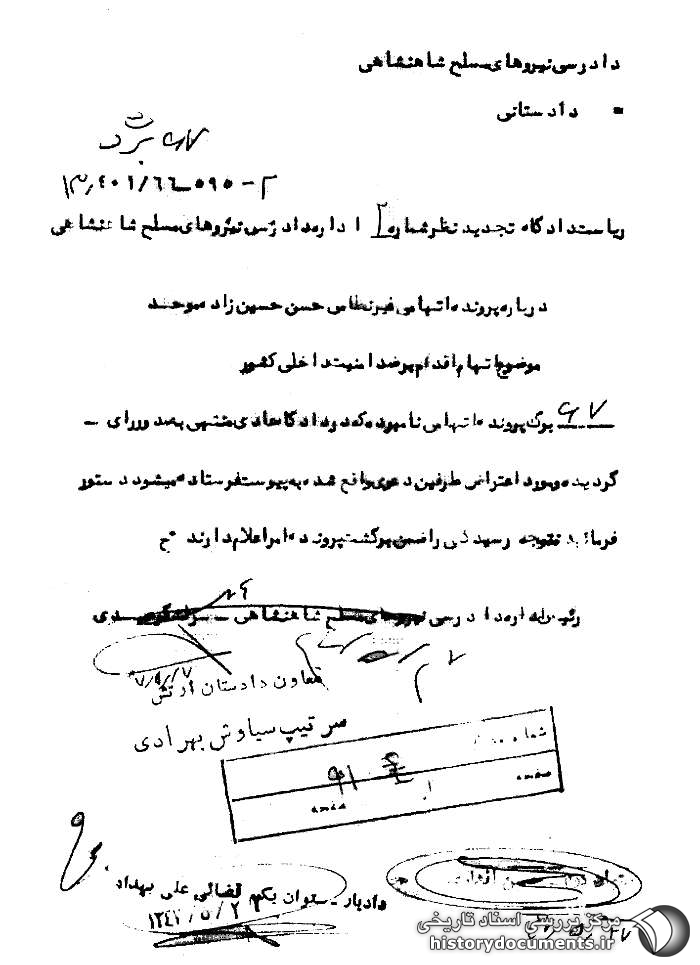 دادرسی نیروهای مسلح شاهنشاهی
= دادستانی
۶۷ برگ
۴۰۱/۶۶-۵۹۵-۲
ریاست دادگاه تجدید نظر شماره ۲ اداره دادرسی نیروهای مسلح شاهنشاهی
درباره پرونده اتهامی غیرنظامی حسن حسین زاده موحد
موضوع اتهام اقدام بر ضد امنیت داخلی کشور
۶۷ برگ پرونده اتهامی نامبرده که در دادگاه عادی منتهی بصدور رای -
گردیده و مورد اعتراض طرفین دعوی واقع شده به پیوست فرستاده میشود دستور
فرمائید نتیجه رسیدگی را ضمن برگشت پرونده امر اعلام دارند ح
رئیس اداره دادرسی نیروهای مسلح شاهنشاهی -
معاون دادستان ارتش
سرتیپ سیاوش بهرادی
شماره
صفحه
از
صفحه
دادیار - ستوان یکم قضائی علی بهداد
مرکز بررسی اسناد تاریخی
historydocuments.ir